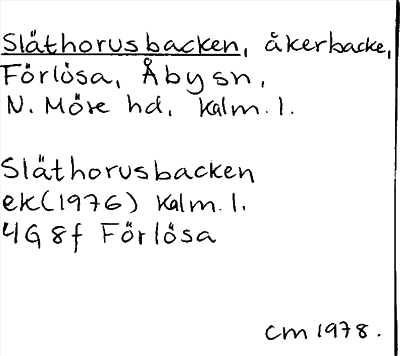 Släthorusbacken, åkerbacke,
Förlösa, Åby sn,
N. Möre hd, Kalm. l.
Släthorusbacken
ek(1976) Kalm. l.
4G 8f Förlösa
CM 1978.